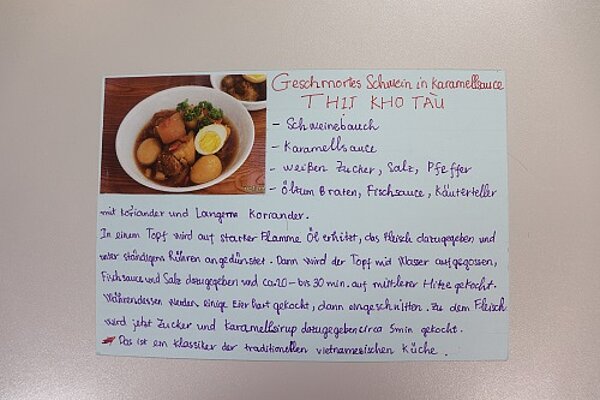 Geschmortes Schwein in Karamellsauce
THỊT KHO TÀU
- Schweinebauch
- Karamellsauce
- weißen Zucker, Salz, Pfeffer
- Öl zum Braten, Fischsauce, Kräuterteller
mit Koriander und Langem Koriander.
In einem Topf wird auf starker Flamme Öl erhitzt, das Fleisch dazugegeben und
unter ständigem Rühren angedünstet. Dann wird der Topf mit Wasser aufgegossen,
Fischsauce und Salz dazugegeben und ca.20-bis 30 min. auf mittlerer Hitze gekocht.
Währendessen werden einige Eier hart gekocht, dann eingeschnitten. Zu dem Fleisch
wird jetzt Zucker und Karamellsirup dazugegeben circa 5min gekocht.
Das ist ein Klassiker der traditionellen vietnamesischen Küche.